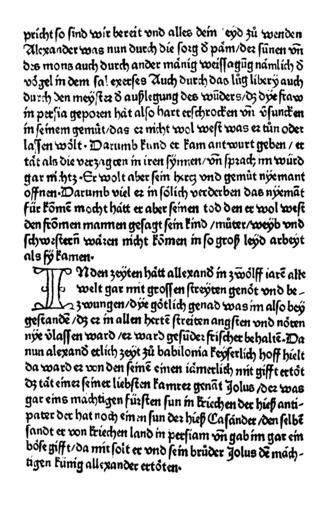 pricht so sind wir bereit vnd alles dem eyd zů wenden
Alexander was nun durch die sorg d̕ pam/ der sünen vn̄
des mons auch durch ander mänig weissagūg nämlich d̕
vögel in dem sal exerses Auch durch das lūg libery auch
durch den meyster d̕ auslegung des wūders/ dz dye fraw
in persia geporen hat also hart erschrocken vn̄ v̕suncken
in seinem gemůt/ das er nicht wol west was er tůn oder
lassen wölt. Darumb kund er kam antwurt geben/ er
tät als die verzagen in iren synnen/ vn̄ sprach im würd
gar nichtz. Er wolt aber sein hertz vnd gemüt nyemant
offnen. Darumb viel er in sölich verderben das nyemāt
für köme mocht hätt er aber seinen tod den er wol west
den fromen mannen gesagt sein kind/ můter/ weyb vnd
schwestern wären nicht kömen in so groß leyd arbeyt
als sy kamen.
IN den zeyten hätt allexand̕ in zwölff iaren alle
welt gar mit grossen streyten genöt vnd be-
zwungen/ dye götlich genad was im also bey
gestanden/ dz er in allen herten streiten angsten vnd nöten
nye v̕lassen ward/ er ward gesūder frischer behalten. Da
nun alexand̕ etlich zeyt zů babilonia keyserlich hoff hielt
da ward er von den seinē einen iämerlich mit gifft ertöt
dz tät einer seiner liebsten kamrer genāt Jolus/ der was
gar eins mächtigen fürsten sun in kriechen der hieß anti-
pater der hat noch einen sun der hieß Casander/ den selbē
sandt er von kriechen land in persiam vn̄ gab im gar ein
böse gifft/ da mit solt er vnd sein brůder Jolus dē mäch-
tigen künig allexander ertöten.